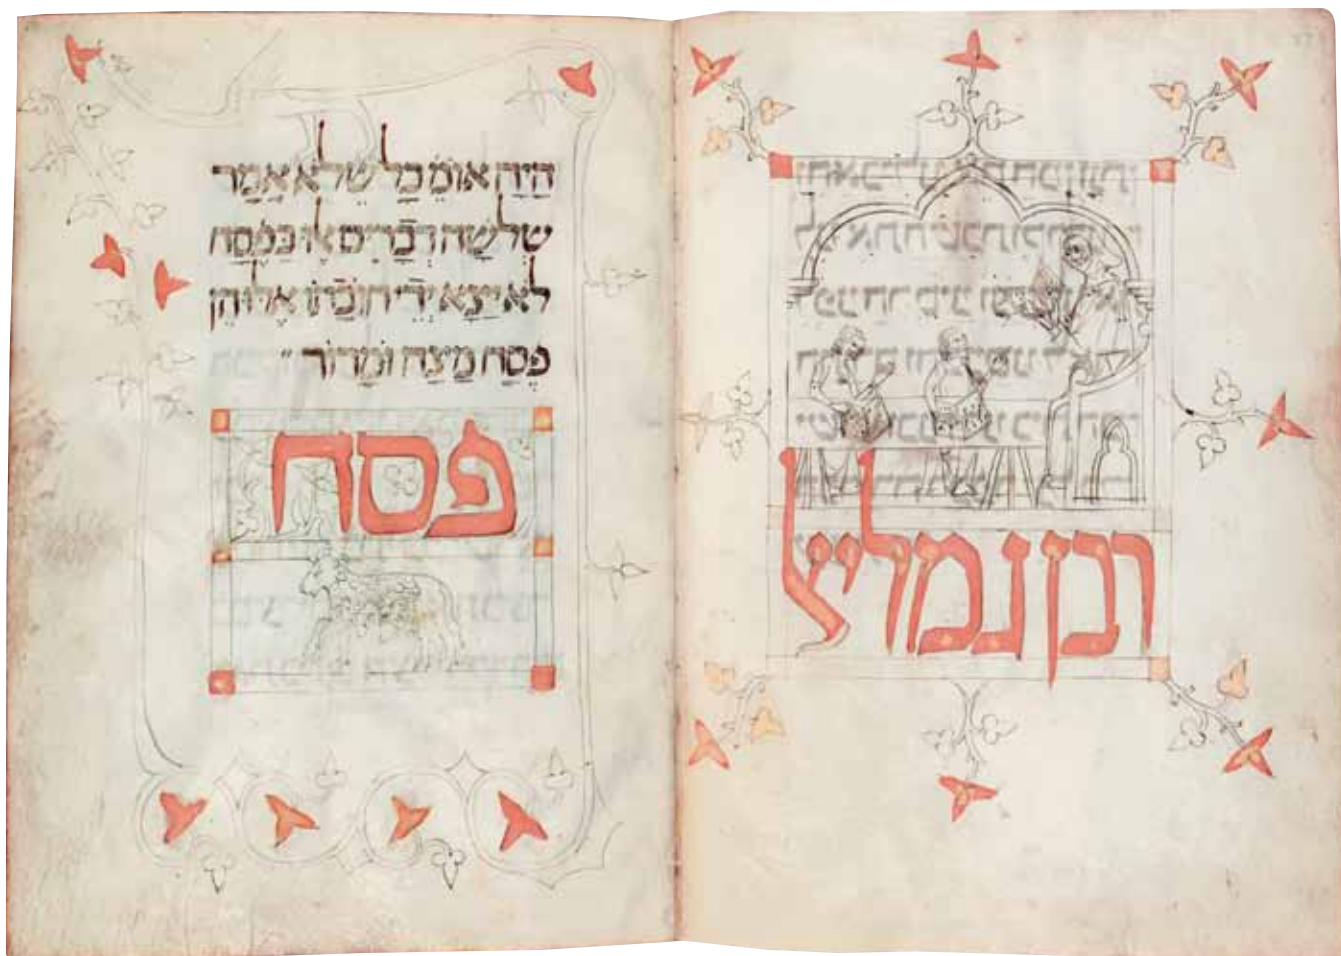 רבן גמליאל
הָיָה אוֹמֵ כָּל שֶׁלֹא אָמַר
שְׁלֹשָׁה דְבָרִים אֵלוּ בַּפֶּסַח
לֹא יָצָא יְדֵי חוֹבָתוֹ אֵלוּ הֵן
פֶּסַח מַצָּה וּמָרוֹר ״
פסח